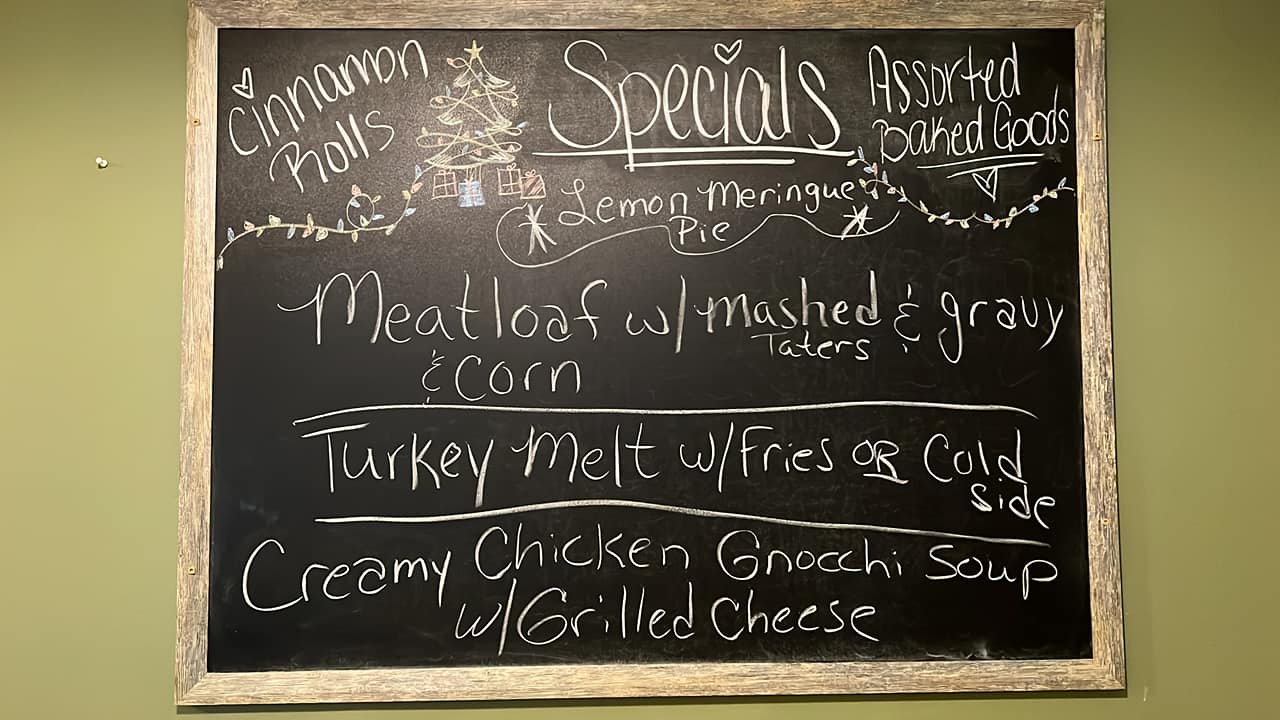 Cinnamon
Rolls
Specials
Assorted
Baked Goods
Lemon Meringue
Pie
Meatloaf w/ mashed & gravy
Taters
& Corn
Turkey Melt w/Fries OR Cold
Side
Creamy Chicken Gnocchi Soup
w/Grilled Cheese